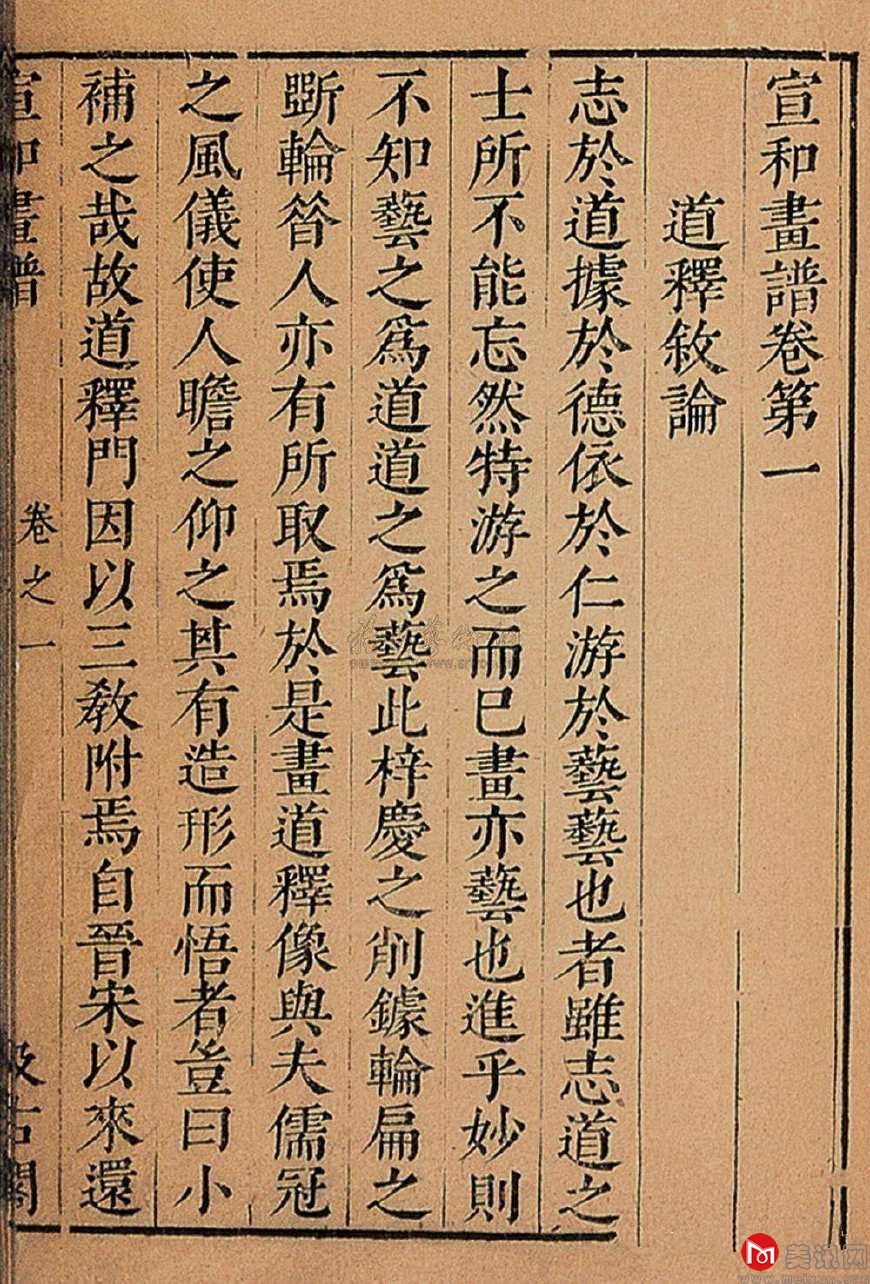 宣和畫譜卷第一
道釋敘論
志於道據於德依於仁游於藝藝也者雖志道之
士所不能忘然特游之而已畫亦藝也進乎妙則
不知藝之爲道道之爲藝此梓慶之削鐻輪扁之
斲輪昝人亦有所取焉於是畫道釋像與夫儒冠
之風儀使人瞻之仰之其有造形而悟者豈曰小
補之哉故道釋門因以三教附焉自晉宋以來還
宣和畫譜
卷之一
汲古閣
美讯网
www.meixun.com